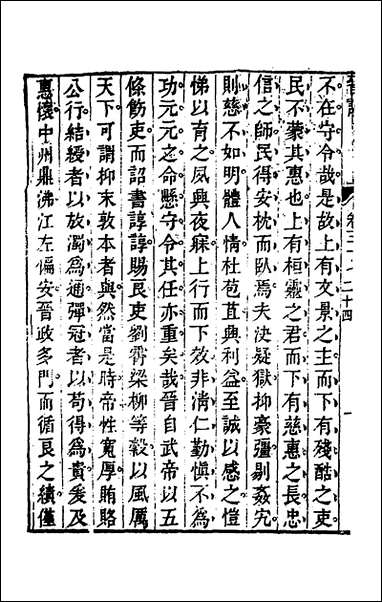 二十四
不在守令哉是故上有文景之主而下有殘酷之吏
民不蒙其惠也上有桓靈之君而下有慈惠之長忠
信之師民得安枕而臥焉夫決疑獄抑豪彊剔姦宄
則慈不如明體人情杜苞苴興利益至誠以感之愷
悌以育之夙興夜寐上行而下效非清仁勤慎不為
功元元之命懸守令其任亦重矣哉晉自武帝以五
條飭吏而詔書諄諄賜良吏劉霄梁柳等穀以風厲
天下可謂抑末敦本者與然當是時帝性寬厚賄賂
公行結綬者以放濁為通彈冠者以苟得為貴爰及
惠懷中州鼎沸江左偏安晉政多門而循良之績僅